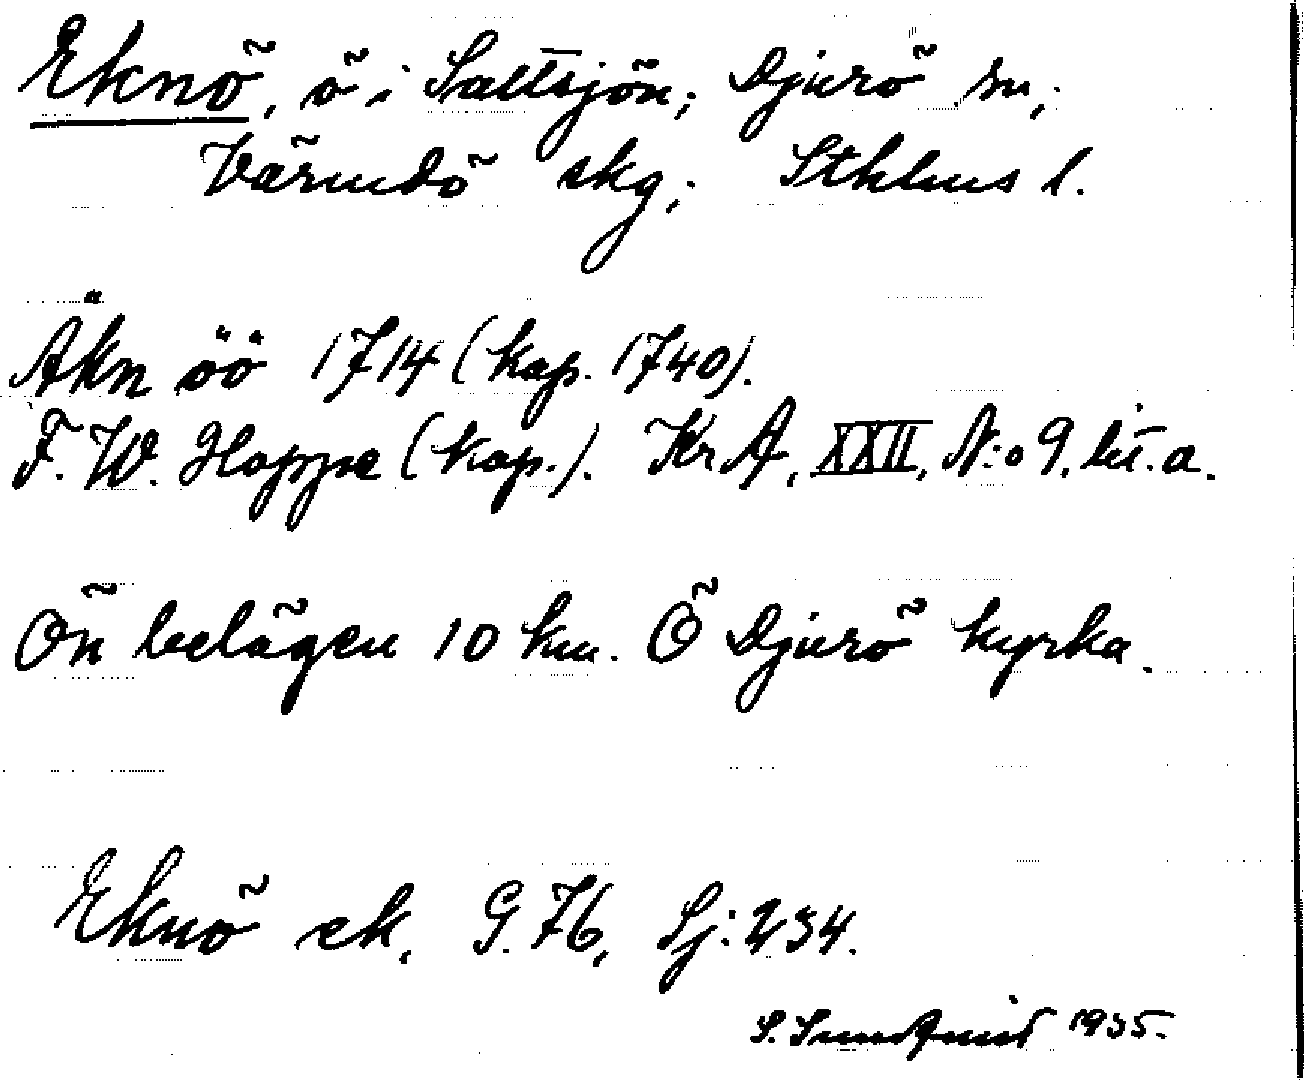 Eknö, ö i Saltsjön; Djurö sn;
Värmdö skg; Sthlms l.
Äkn öö 1714 (kap. 1740).
F. W. Hoppe (kap.). Kr A, XXII, N:o 9. lit. a.
Ön belägen 10 km. Ö Djurö kyrka.
Eknö ek, G. 76, Sj: 234.
S. Sundquist 1935.